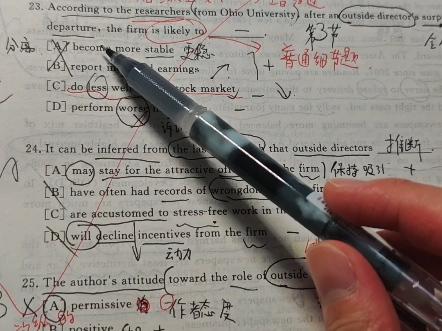 23. According to the researchers from Ohio University, after an outside director's sur
departure, the firm is likely to 第3节
[A] become more stable 更稳
[B] report earnings + 普通细节题
[C] do less well stock market
[D] perform worse
24. It can be inferred from the las that outside directors 推断
[A] may stay for the attractive of the firm 保持 吸引 +
[B] have often had records of wrongdo
[C] are accustomed to stress-free work in the
[D] will decline incentives from the firm
动力
25. The author's attitude toward the role of outside
[A] permissive 作者态度
[B] positive